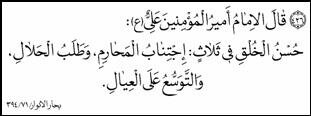 (٤٣٦) قَالَ الإِمَامُ أَمِيرُ الْمُؤْمِنِينَ عَلِيٌّ (ع):
حُسْنُ الْخُلْقِ فِي ثَلَاثٍ: اِجْتِنَابُ الْمَحَارِمِ، وَطَلَبُ الْحَلَالِ،
وَالتَّوَسُّعُ عَلَى الْعِيَالِ.
بحار الانوار ٣٩٤/٧١